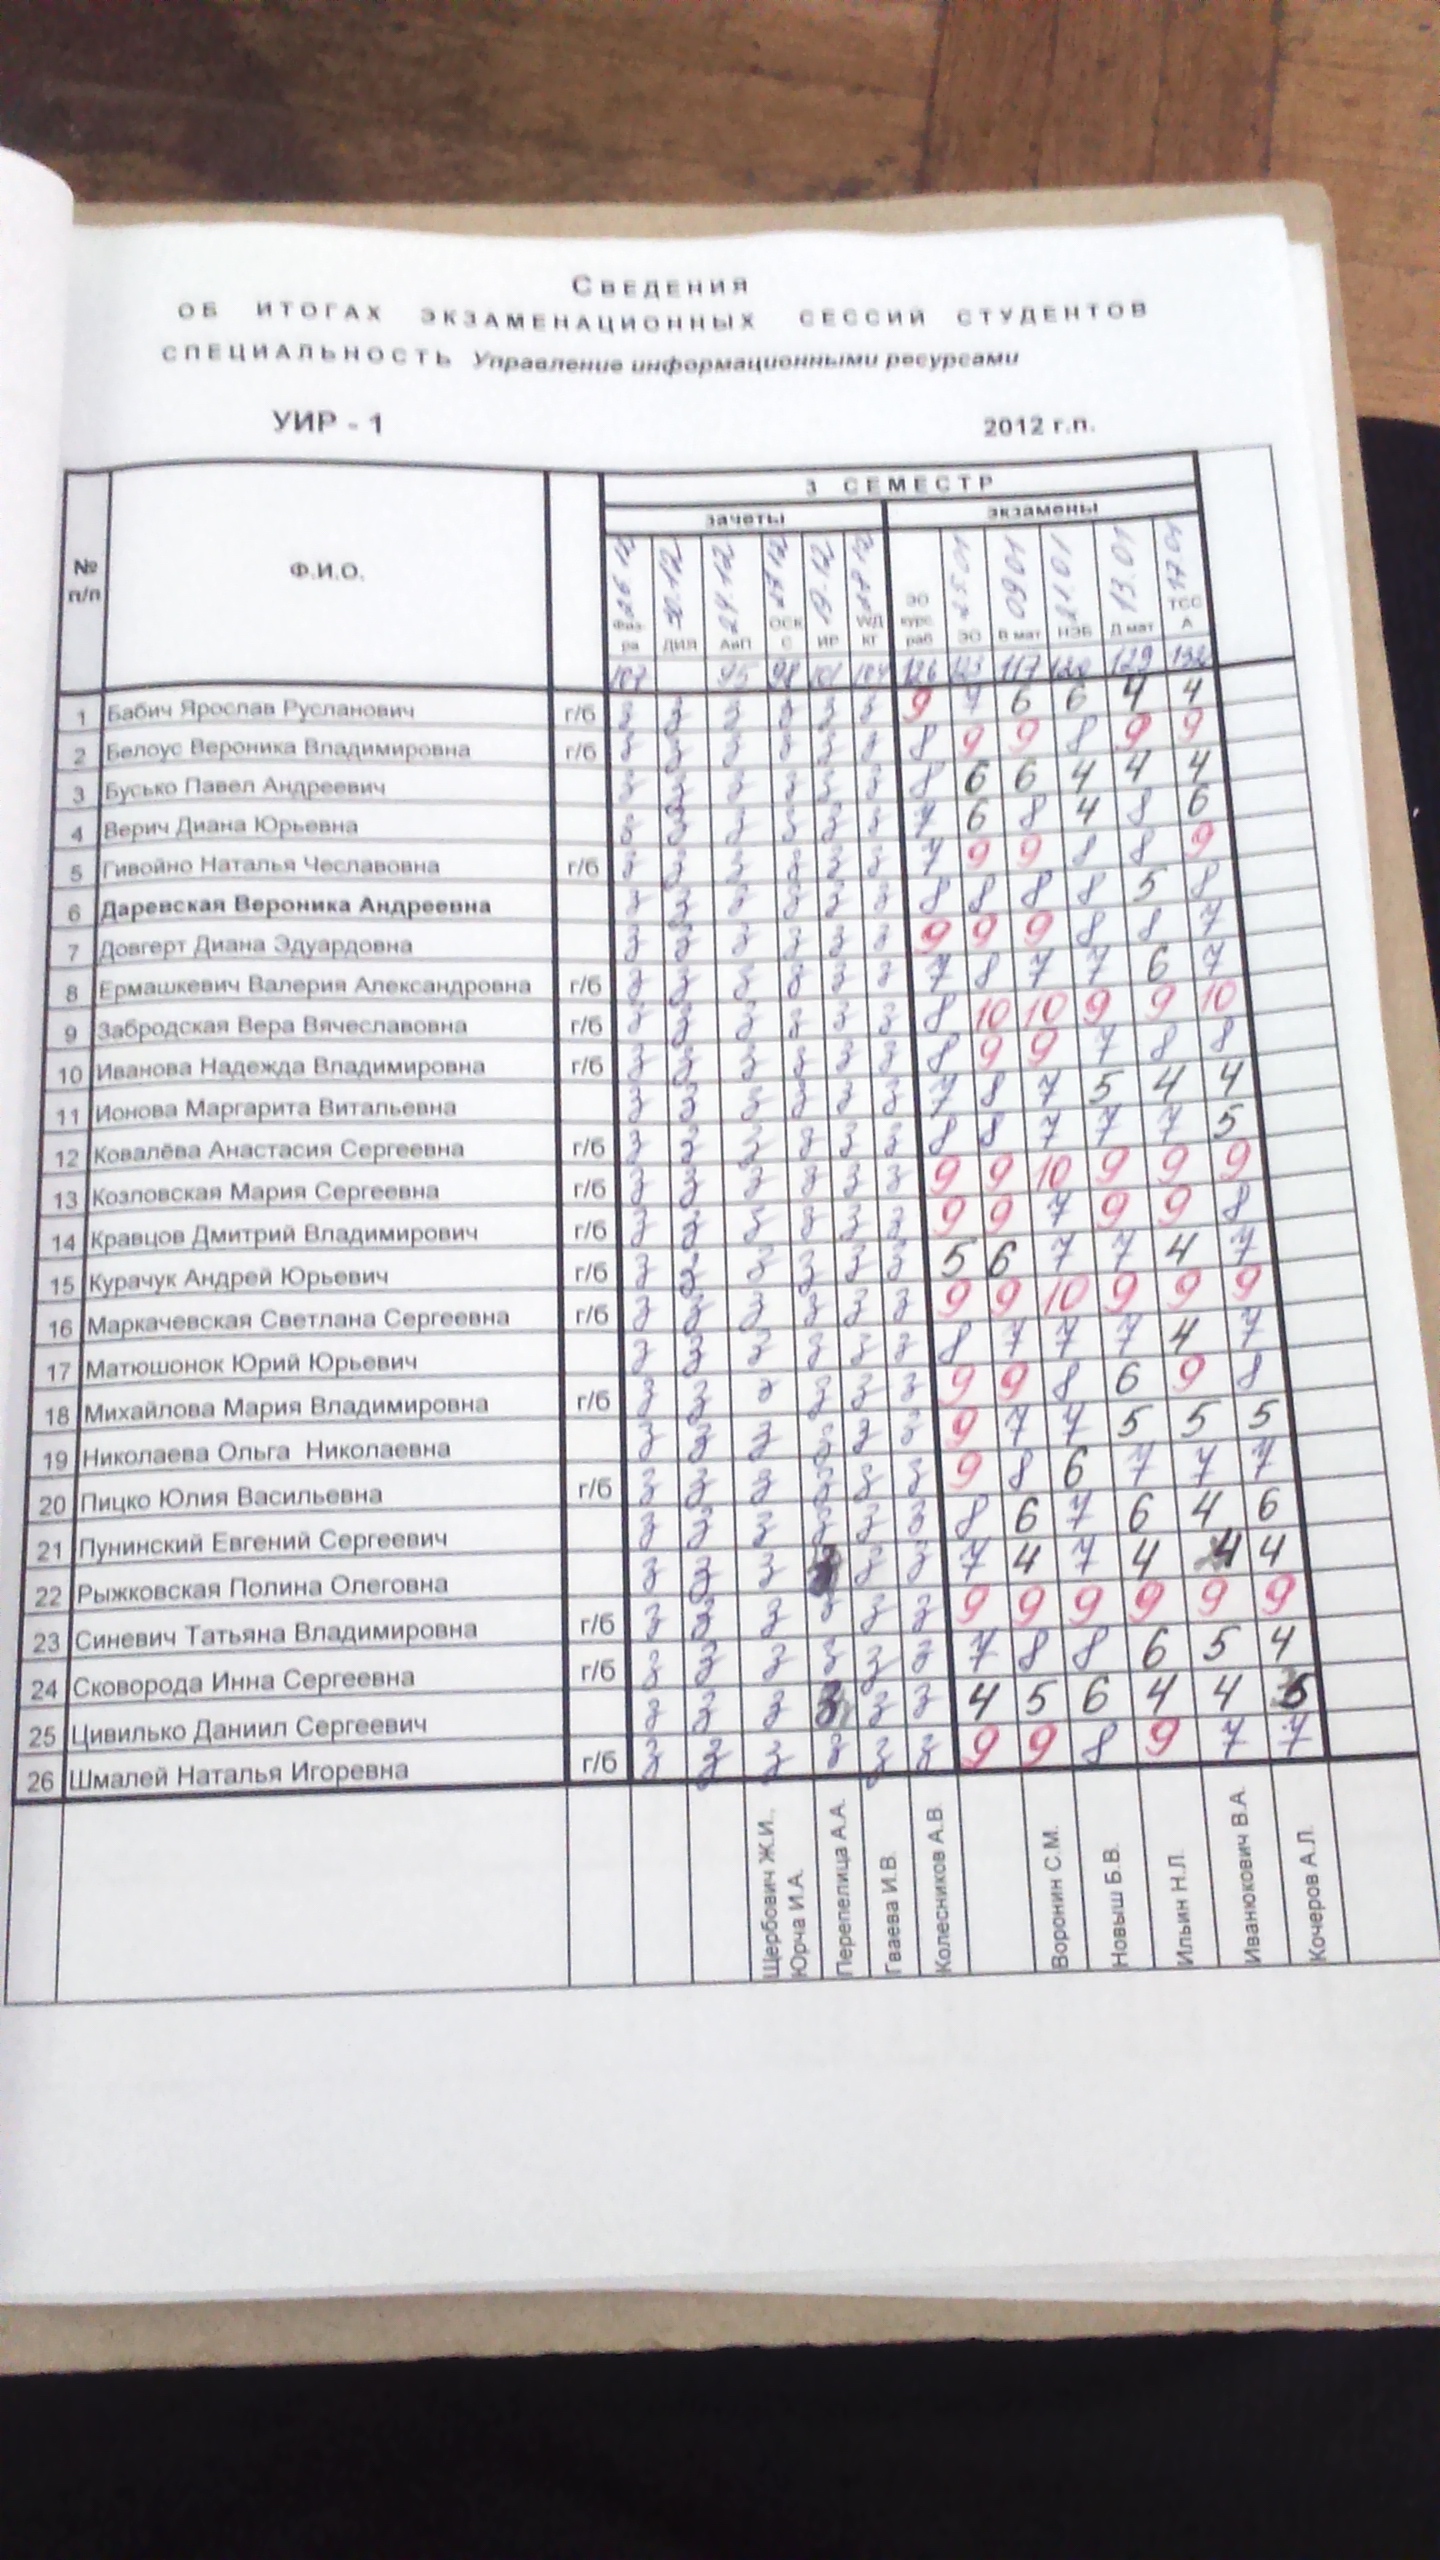 Сведения
ОБ ИТОГАХ ЭКЗАМЕНАЦИОННЫХ СЕССИЙ СТУДЕНТОВ
СПЕЦИАЛЬНОСТЬ Управление информационными ресурсами
УИР - 1 2012 г.п.
3 СЕМЕСТР
зачеты экзамены
№ п/п Ф.И.О.
26.12 30.12 24.12 19.12 25.01 09.01 21.01 13.01 17.01
Физ-ра ДИЯ АвП ОСКС ИР ЭО курс раб ЭО В мат НЭБ Д мат ТССА
107 95 98 101 104 126 123 117 120 129 132
1 Бабич Ярослав Русланович г/б з з з з з з 9 7 6 6 4 4
2 Белоус Вероника Владимировна г/б з з з з з з 8 9 9 8 9 9
3 Бусько Павел Андреевич з з з з з з 8 6 6 4 4 4
4 Верич Диана Юрьевна з з з з з з 7 6 8 4 8 6
5 Гивойно Наталья Чеславовна г/б з з з з з з 7 9 9 8 8 9
6 Даревская Вероника Андреевна з з з з з з 8 8 8 8 5 8
7 Довгерт Диана Эдуардовна з з з з з з 9 9 9 8 8 7
8 Ермашкевич Валерия Александровна г/б з з з з з з 7 8 7 7 6 7
9 Забродская Вера Вячеславовна г/б з з з з з з 8 10 10 9 9 10
10 Иванова Надежда Владимировна г/б з з з з з з 8 9 9 7 8 8
11 Ионова Маргарита Витальевна з з з з з з 7 8 7 5 4 4
12 Ковалёва Анастасия Сергеевна г/б з з з з з з 8 8 7 7 7 5
13 Козловская Мария Сергеевна г/б з з з з з з 9 9 10 9 9 9
14 Кравцов Дмитрий Владимирович г/б з з з з з з 9 9 7 9 9 8
15 Курачук Андрей Юрьевич г/б з з з з з з 5 6 7 7 4 7
16 Маркачевская Светлана Сергеевна г/б з з з з з з 9 9 10 9 9 9
17 Матюшонок Юрий Юрьевич з з з з з з 8 7 7 7 4 7
18 Михайлова Мария Владимировна г/б з з з з з з 9 9 8 6 9 8
19 Николаева Ольга Николаевна з з з з з з 9 7 7 5 5 5
20 Пицко Юлия Васильевна г/б з з з з з з 9 8 6 7 7 7
21 Пунинский Евгений Сергеевич з з з з з з 8 6 7 6 4 6
22 Рыжковская Полина Олеговна з з з з з з 7 4 7 4 4 4
23 Синевич Татьяна Владимировна г/б з з з з з з 9 9 9 9 9 9
24 Сковорода Инна Сергеевна г/б з з з з з з 7 8 8 6 5 4
25 Цивилько Даниил Сергеевич з з з з з з 4 5 6 4 4 5
26 Шмалей Наталья Игоревна г/б з з з з з з 9 9 8 9 7 7
Щербович Ж.И.,
Юрча И.А.
Перепелица А.А.
Гваева И.В.
Колесников А.В.
Воронин С.М.
Новыш Б.В.
Ильин Н.Л.
Иванюкович В.А.
Кочеров А.Л.